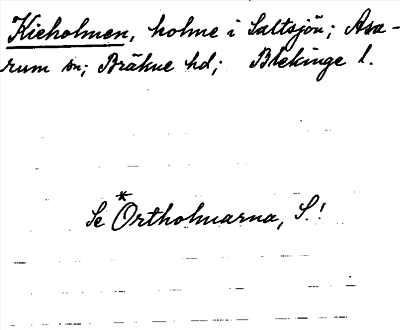 Kieholmen, holme i Saltsjön; Asa-
rum sn; Bräkne hd; Blekinge l.
Se *Ortholmarna, S.!